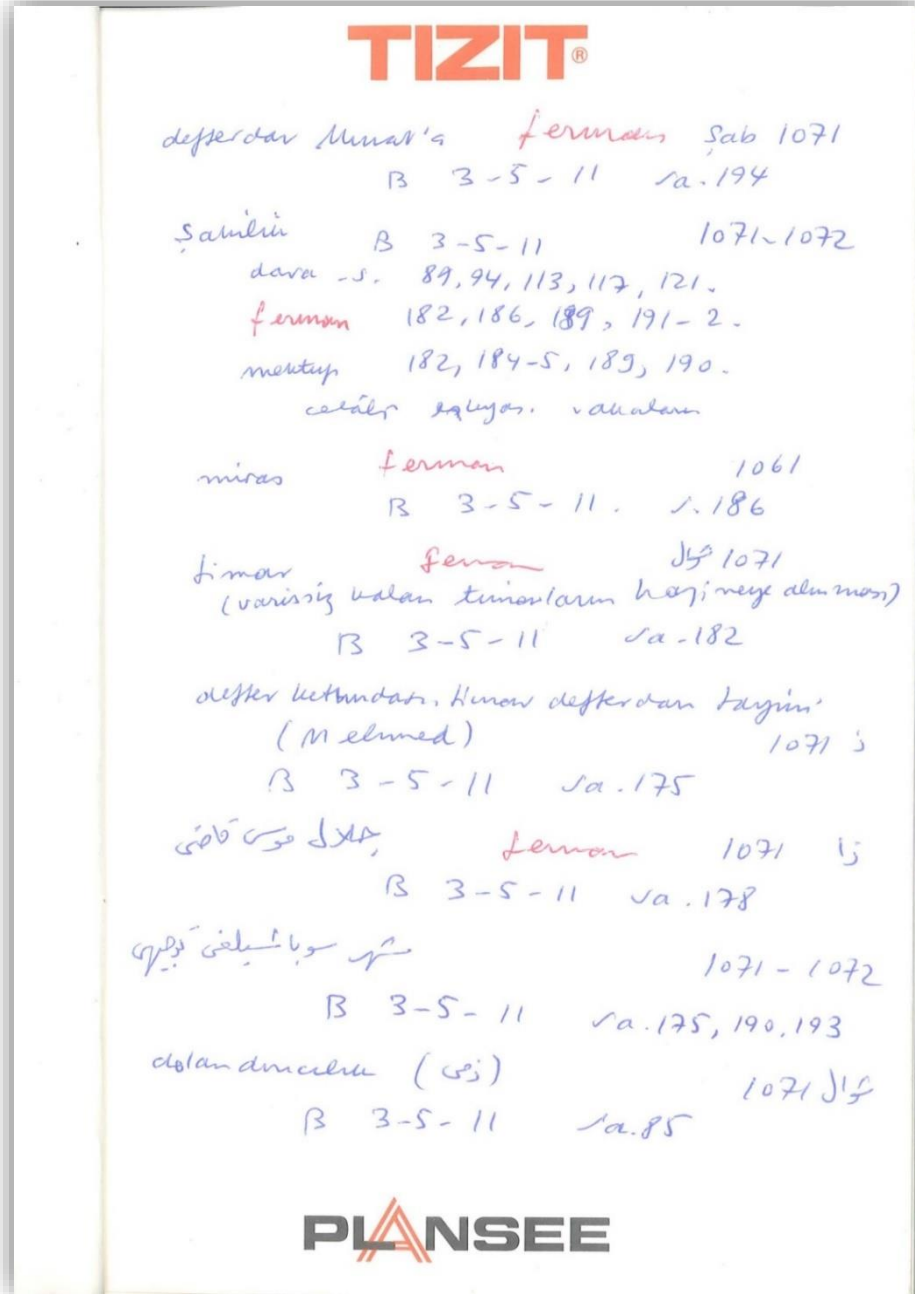 TIZIT®
defterdar Murat'a ferman Şab 1071
B 3-5-11 sa.194
B 3-5-11 1071-1072
dava s. 89, 94, 113, 117, 121.
ferman 182, 186, 189, 191-2.
mektup 182, 184-5, 189, 190.
celâli eşkıyası. vakaları
miras ferman 1061
B 3-5-11. s.186
timar ferman شوال 1071
(varissiz kalan timarların hazineye alınması)
B 3-5-11 sa.182
defter kethüdası, timar defterdarı tayini
(Mehmed) 1071 ذ
B 3-5-11 sa.175
قاضى ferman 1071 ذا
B 3-5-11 sa.178
شهر سوباشيلغى توجيهى 1071-1072
B 3-5-11 sa.175, 190, 193
dolandırıcılık (ذمى) 1071 شوال
B 3-5-11 sa.85
PLANSEE